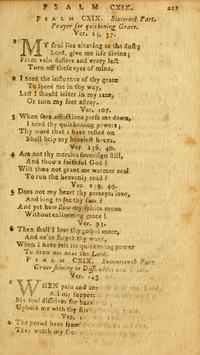 PSALM CXIX. 221
PSALM CXIX. Sixteenth Part.
Prayer for quickening Grace.
Ver. 25, 37.
MY soul lies cleaving to the dust;
Lord, give me life divine;
From vain desires and every lust
Turn off these eyes of mine.
2 I need the influence of thy grace
To speed me in thy way,
Lest I should loiter in my race,
Or turn my feet astray.
Ver. 107.
3 When sore afflictions press me down,
I need thy quickening powers;
Thy word that I have rested on
Shall help my heaviest hours.
Ver. 156, 40.
4 Are not thy mercies sovereign still,
And thou a faithful God?
Wilt thou not grant me warmer zeal
To run the heavenly road?
Ver. 159, 40.
5 Does not my heart thy precepts love,
And long to see thy face?
And yet how slow my spirits move
Without enlivening grace!
Ver. 93.
6 Then shall I love thy gospel more,
And ne'er forget thy word,
When I have felt its quickening power
To draw me near the Lord.
PSALM CXIX. Seventeenth Part.
Grace shining in Difficulties and Trials.
WHEN pain and
All my support
My soul dissolves for heaviness
Uphold me with thy
2 The proud have fram'd
They watch my feet